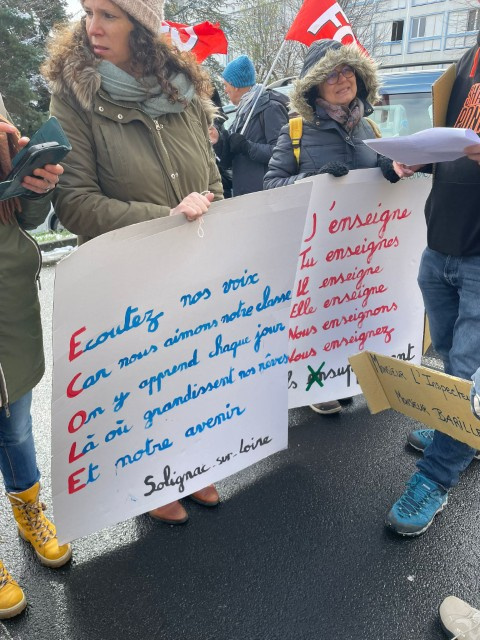 FO
Ecoutez nos voix
Car nous aimons notre classe
On y apprend chaque jour
Là où grandissent nos rêves
Et notre avenir
Solignac-sur-Loire
J'enseigne
Tu enseignes
Il enseigne
Elle enseigne
Nous enseignons
Vous enseignez
Monsieur L'Inspecteur
Monsieur